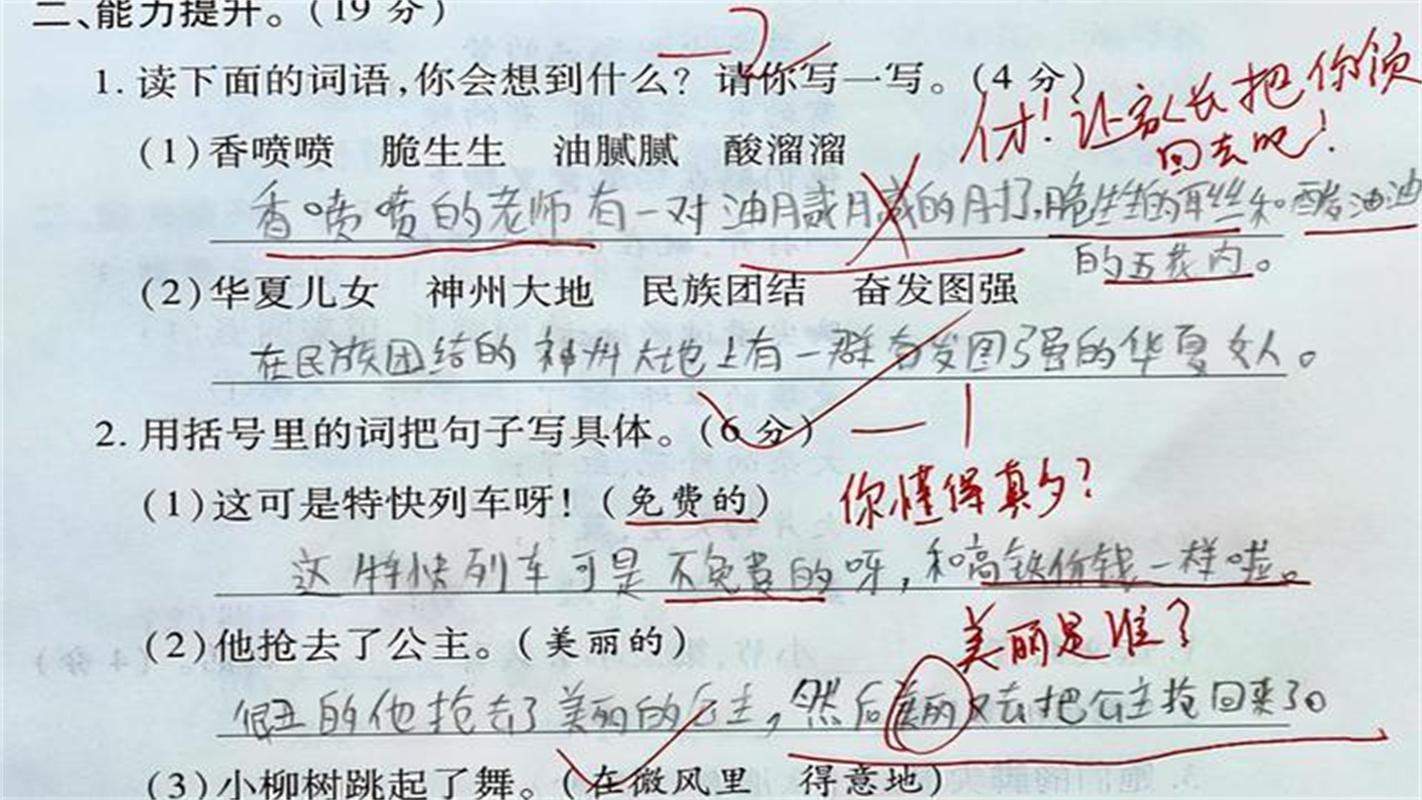 二、能力提升。(19 分)
1. 读下面的词语,你会想到什么? 请你写一写。(4 分)
(1)香喷喷 脆生生 油腻腻 酸溜溜
才! 让家长把你领
回去吧!
香喷喷的老师有一对油的,脆生生的耳丝和酸油油
的五花肉。
(2)华夏儿女 神州大地 民族团结 奋发图强
在民族团结的神州大地上有一群奋发图强的华夏女人。
2. 用括号里的词把句子写具体。(6 分) 一1
(1)这可是特快列车呀!(免费的)
你懂得真多?
这特快列车可是不免费的呀,和高铁价钱一样啦。
(2)他抢去了公主。(美丽的)
美丽是谁?
很丑的他抢去了美丽的公主,然后美丽又去把公主抢回来了。
(3)小柳树跳起了舞。(在微风里 得意地)